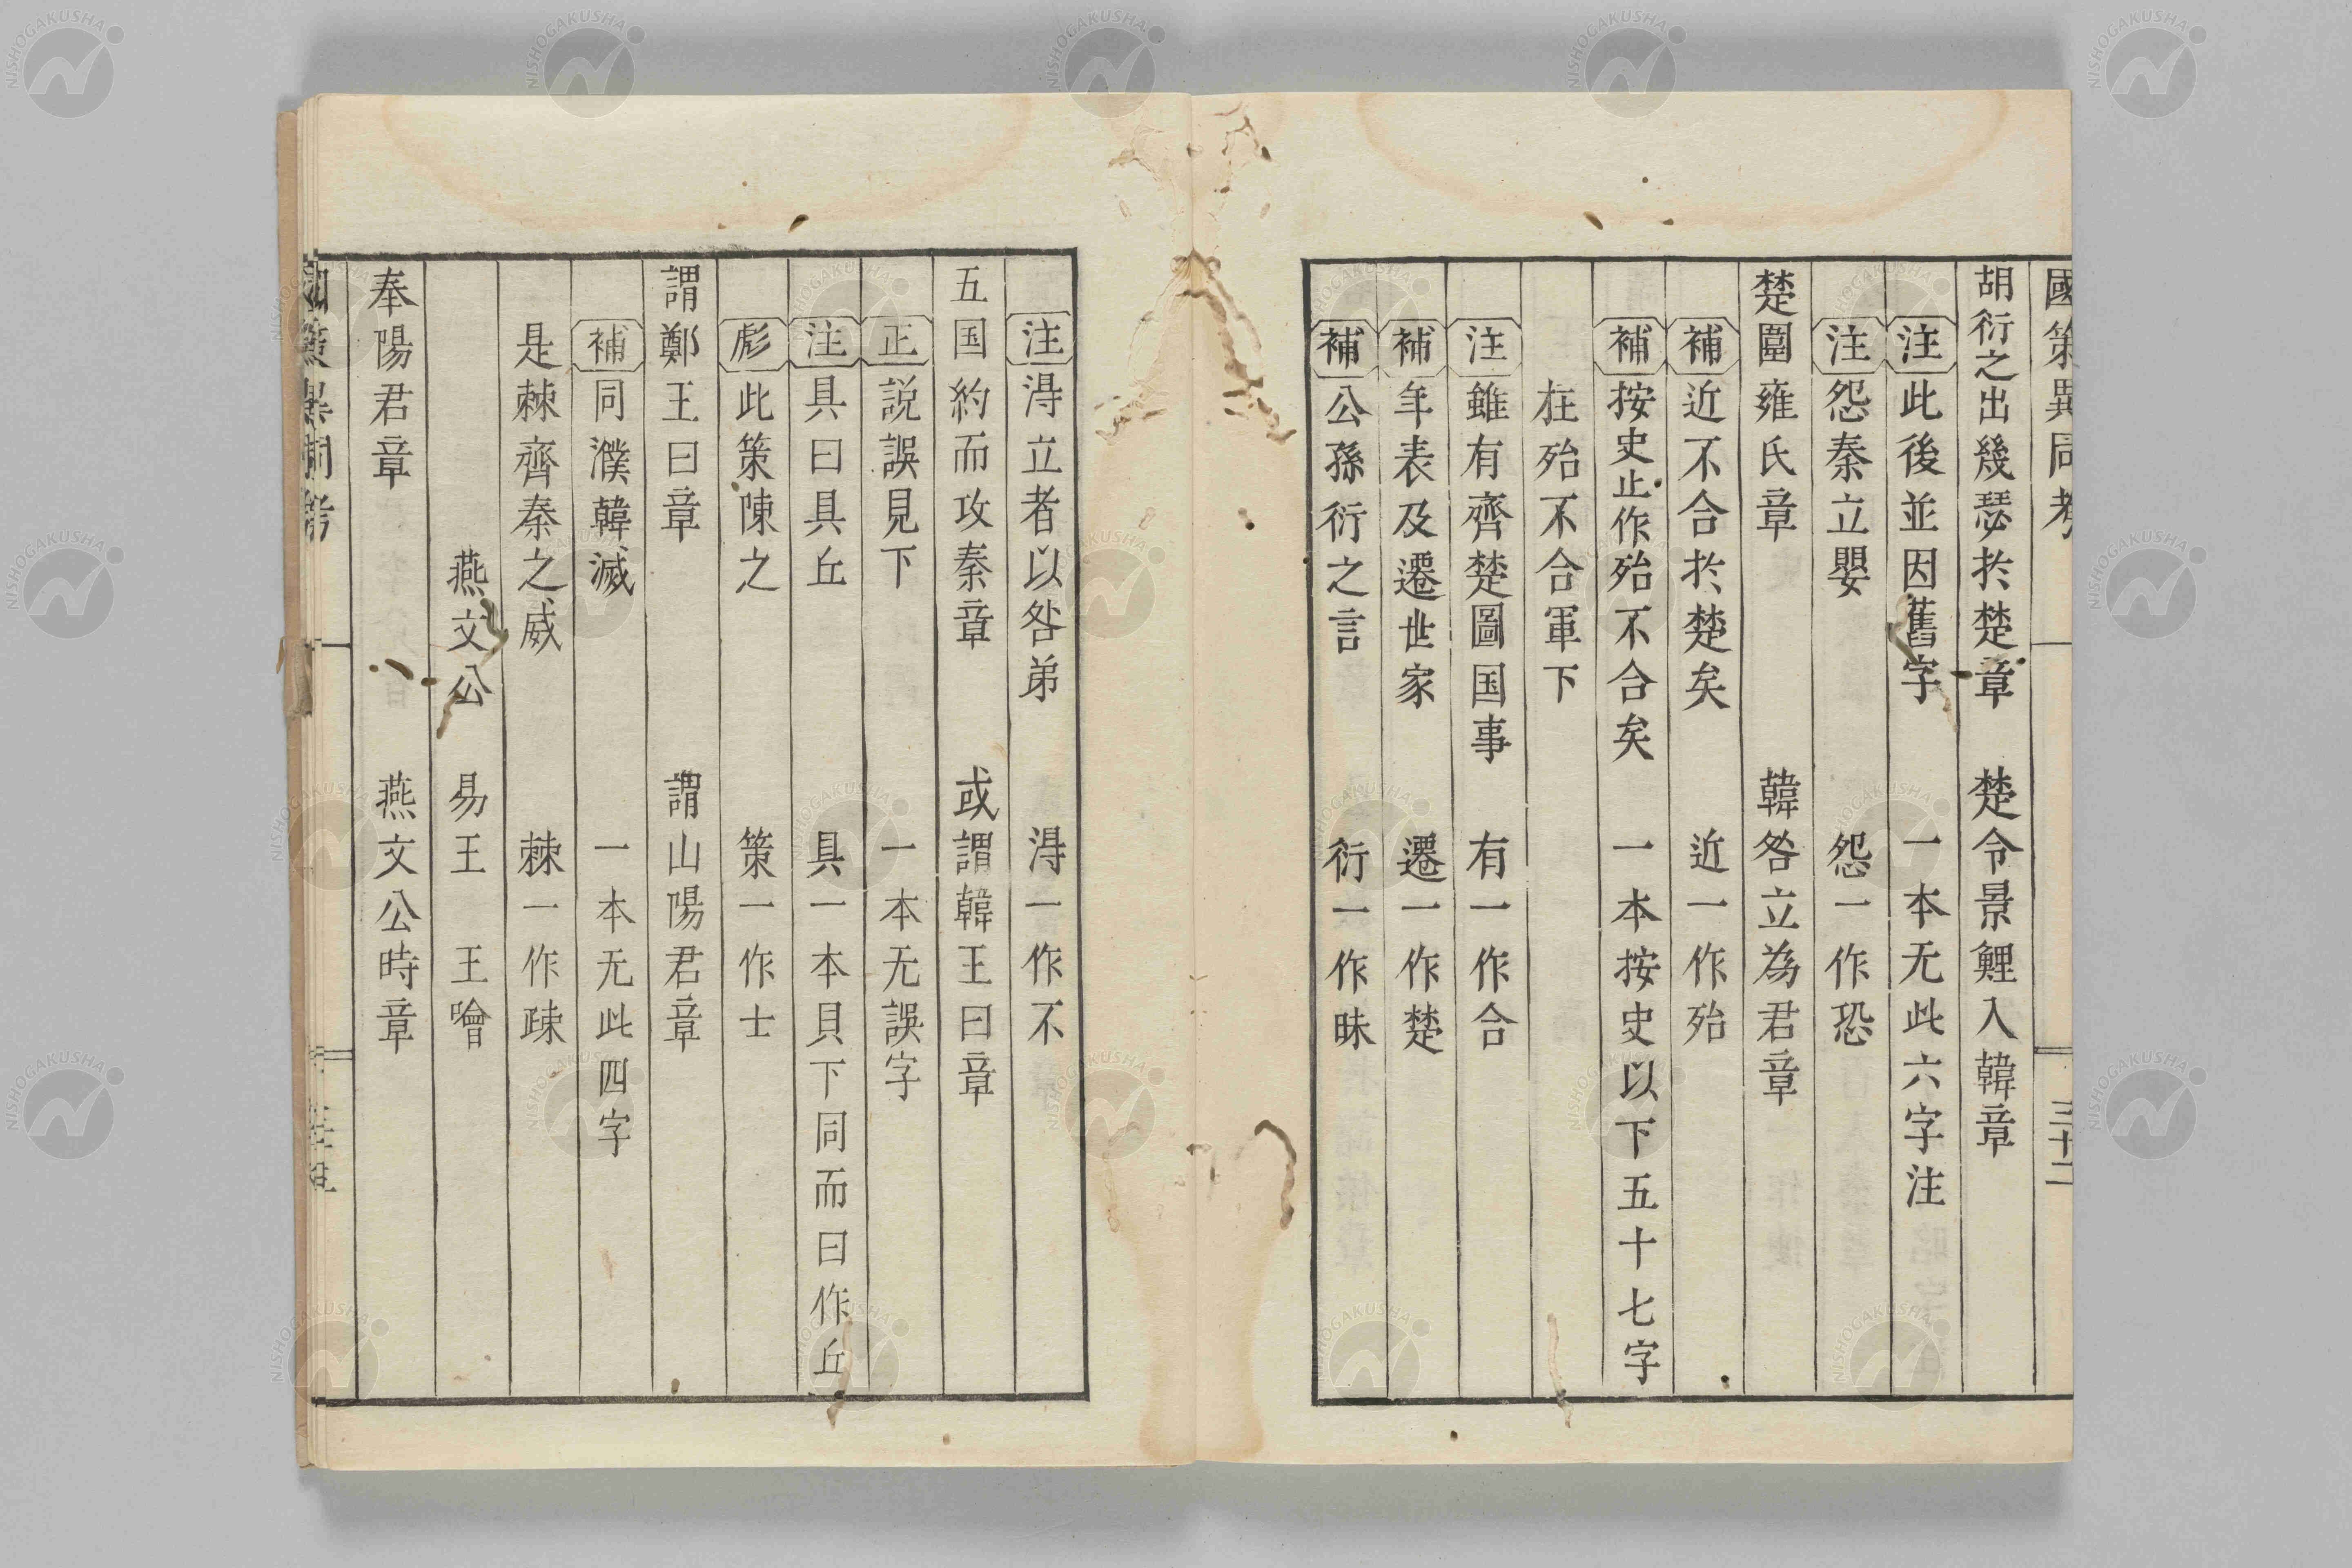 國策異同考 三十二
胡衍之出幾瑟於楚章 楚令景鯉入韓章
注 此後並因舊字 一本无此六字注
注 怨秦立嬰 怨一作恐
楚圍雍氏章 韓咎立為君章
補 近不合於楚矣 近一作殆
補 按史止作殆不合矣 一本按史以下五十七字
在殆不合軍下
注 雖有齊楚圖国事 有一作合
補 年表及遷世家 遷一作楚
補 公孫衍之言 衍一作昧
注 淂立者以咎弟 淂一作不
五国約而攻秦章 或謂韓王曰章
正 説誤見下 一本无誤字
注 具曰具丘 具一本貝下同而曰作丘
彪 此策陳之 策一作士
謂鄭王曰章 謂山陽君章
補 同濮韓滅 一本无此四字
是棘齊秦之威 棘一作疎
燕文公 易王 王噲
奉陽君章 燕文公時章